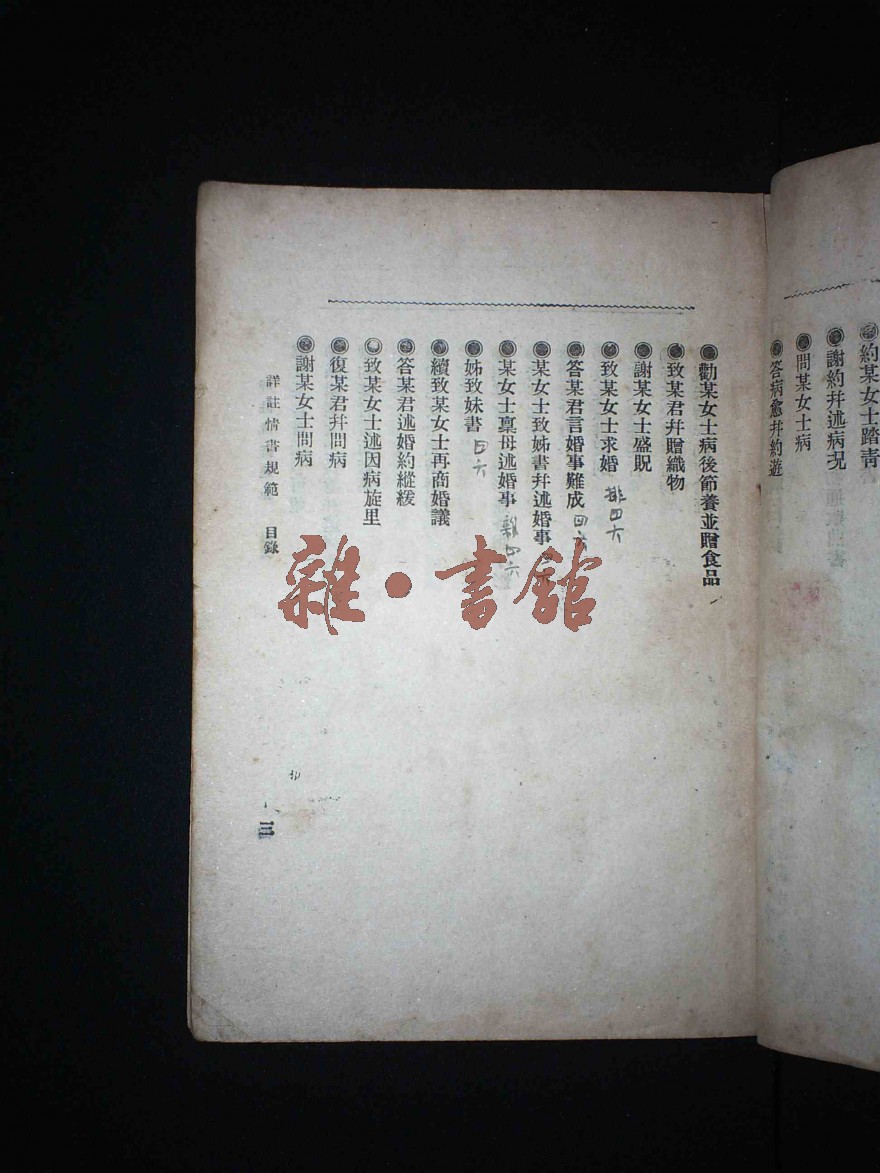 約某女士踏青
謝約幷述病况
問某女士病
答病愈幷約遊
勸某女士病後節養並贈食品
致某君幷贈織物
謝某女士盛貺
致某女士求婚 排四六
答某君言婚事難成 四六
某女士致姊書幷述婚事
某女士稟母述婚事 四六
姊致妹書 四六
續致某女士再商婚議
答某君述婚約縱緩
致某女士述因病旋里
復某君幷問病
謝某女士問病
詳註情書規範 目錄
三
雜·書館